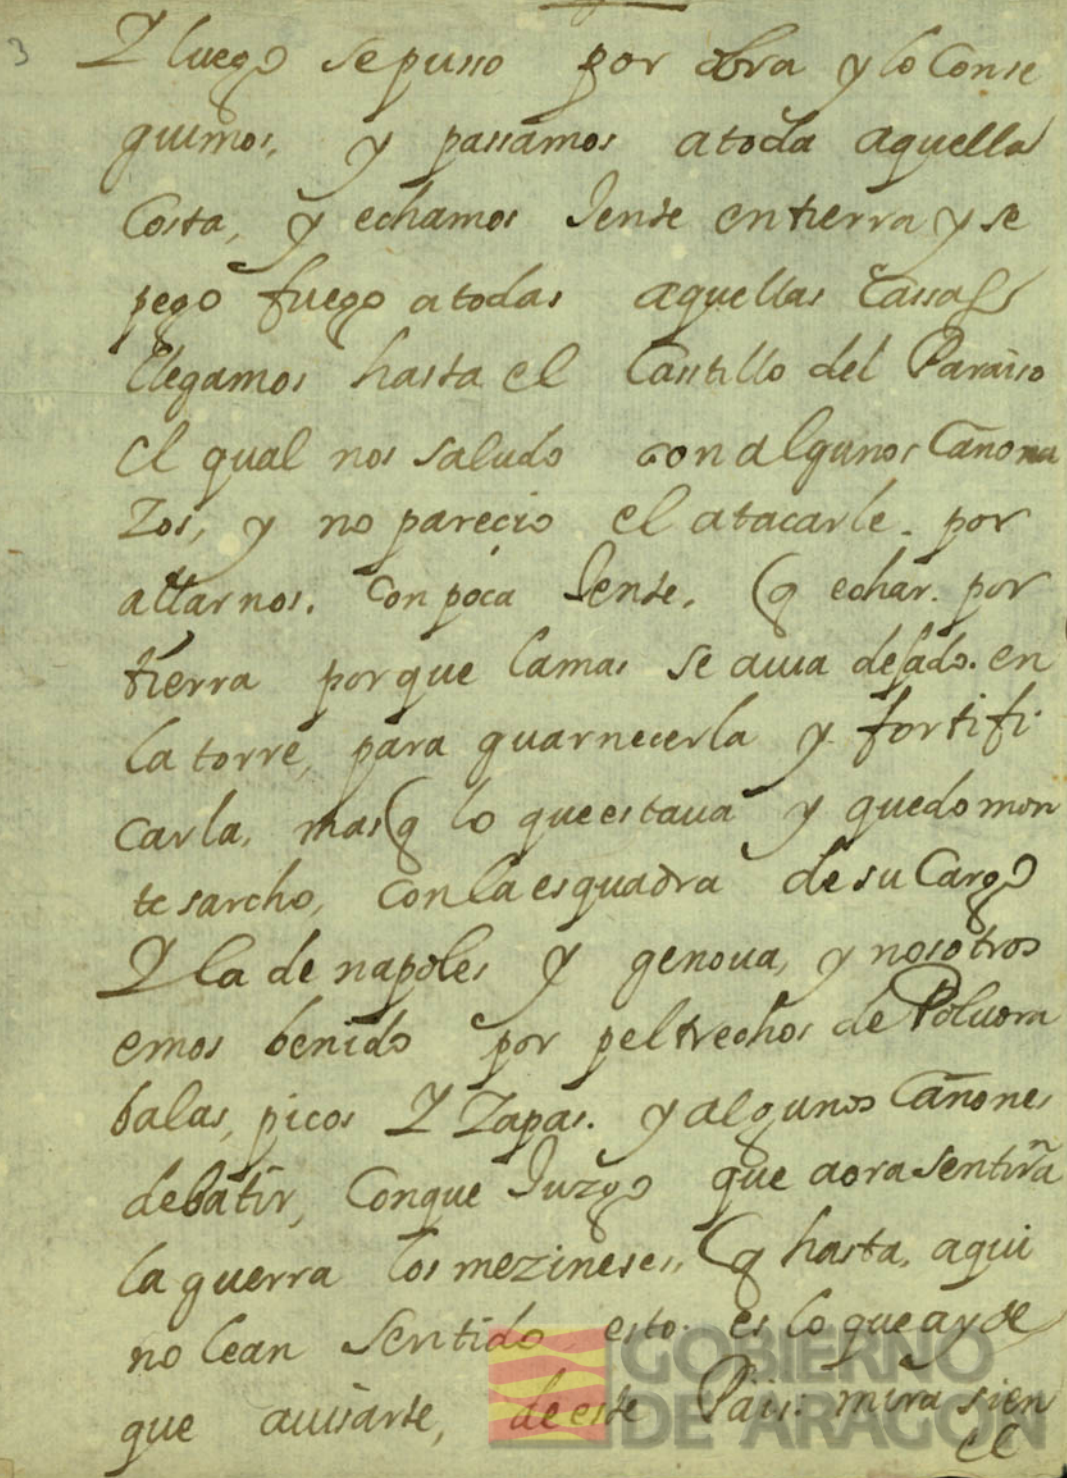 3
Y luego se pusso por obra y lo Conse
guimos, y passamos a toda aquella
Costa, y echamos Jente en tierra y se
pego fuego a todas aquellas Cassas
llegamos hasta el Castillo del Paraiso
el qual nos saludo con algunos Cañona
Zos, y no parecio el atacarle. por
allarnos. con poca Jente. q echar. por
tierra porque la mas se auia dejado. en
la torre, para guarnecerla y fortifi
carla, mas q lo que estaua y quedo mon
te sarcho, con la esquadra de su Cargo
Y la de napoles y genoua, y nosotros
emos benido por peltrechos de Poluora
balas, picos Y Zapas. y algunos Cañones
de batir, Conque Juzgo que aora sentirā
la guerra los mezineses,, q hasta. aqui
no lean sentido esto. es lo que ay de
que auisarte, de este Pais: mira si en
el
GOBIERNO
DE ARAGON